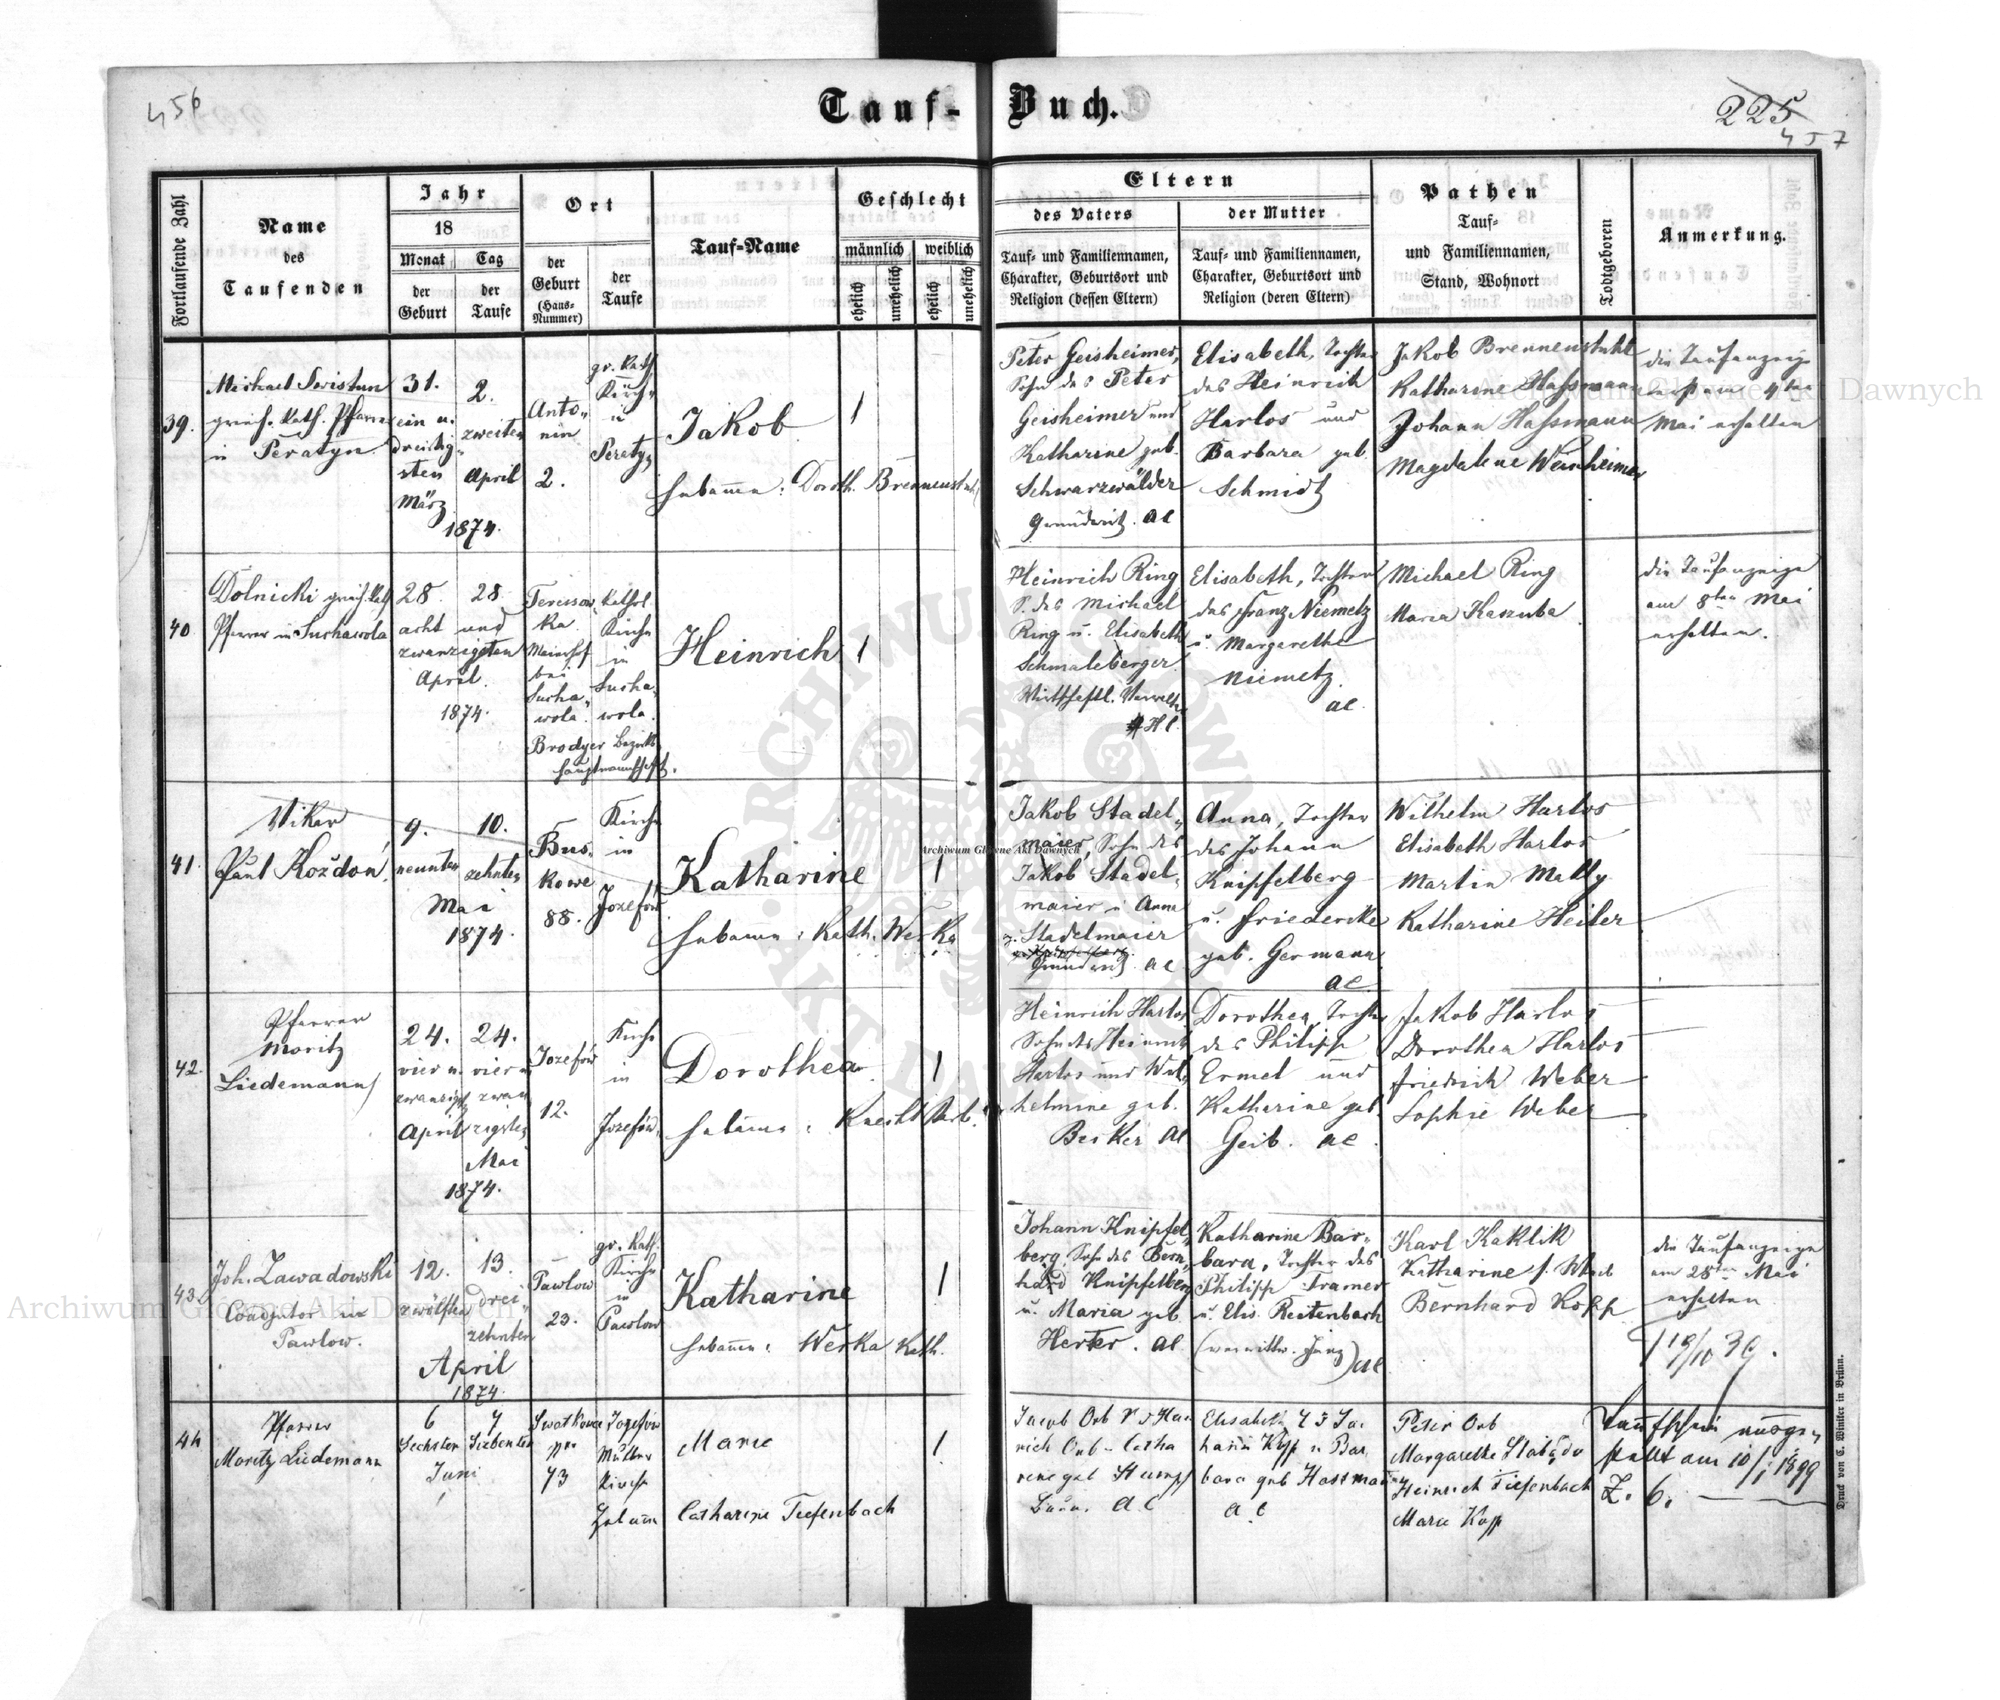 456
Tauf-Buch.
225
457
Fortlaufende Zahl
Name
des
Taufenden
Jahr
18
Monat
der
Geburt
Tag
der
Taufe
Ort
der
Geburt
(Haus-
Nummer)
der
Taufe
Tauf-Name
Geschlecht
männlich
weiblich
ehelich
unehelich
ehelich
unehelich
Eltern
des Vaters
Tauf- und Familiennamen,
Charakter, Geburtsort und
Religion (dessen Eltern)
der Mutter
Tauf- und Familiennamen,
Charakter, Geburtsort und
Religion (deren Eltern)
Pathen
Tauf-
und Familiennamen,
Stand, Wohnort
Todtgeboren
Anmerkung.
39.
Michael
griech. kath. Pfarrer
in Peratyn
31.
ein u.
dreißig-
sten
März
2.
zweiten
April
1874.
Anto-
nin
2.
gr. kath.
Kirche
Peratyn
Jakob
1
Hebamme: Doroth. Brennenstuhl
Peter Geisheimer,
Sohn des Peter
Geisheimer und
Katharine geb.
Schwarzwälder
Grundwirt. AC
Elisabeth, Tochter
des Heinrich
Harlos und
Barbara geb.
Schmidt
Jakob Brennenstuhl
Katharine Hassmann
Johann Hassmann
Magdalene Weinheimer
die Taufanzeige
am 4ten
Mai erhalten
40
Dolnicki griech. kath.
Pfarrer in Suchawola
28.
acht und
zwanzigsten
April.
1874.
28.
Maierhof
bei
Sucha-
wola.
Brodyer Bezirks-
hauptmannschaft.
Kathol.
Kirche
in
Sucha-
wola.
Heinrich
1
Heinrich Ring
S. des Michael
Ring u. Elisabeth
Schmaleberger
HC.
Elisabeth, Tochter
des Franz Niemetz
u. Margarethe
Niemetz
AC.
Michael Ring
Maria Kaszuba
die Taufanzeige
am 8ten Mai
erhalten.
41.
Vikar
Paul Kozdon
9.
neunten
10.
zehnten
Mai
1874.
Bus-
kowe
88.
Kirche
in
Jozefów
Katharine
1
Hebamme: Kath. Werka
Jakob Stadel-
maier, Sohn des
Jakob Stadel-
maier u. Anna
Stadelmaier
Grundwirt. AC
Anna, Tochter
des Johann
Knipfelberg
u. Friedericke
geb. Germann
AC
Wilhelm Harlos
Elisabeth Harlos
Martin Mally
Katharine Heiler
42.
Pfarrer
Moritz
Liedemann
24.
vier u.
zwanzigst.
April
24.
vier u.
zwan-
zigsten
Mai
1874.
Jozefów
12.
Kirche
in
Jozefów.
Dorothea
1
Hebamme: Knecht Barb.
Heinrich Harlos
Sohn des Heinrich
Harlos und Wil-
helmine geb.
Becker AC
Dorothea, Tochter
des Philipp
Ermel und
Katharine geb.
Geib. AC.
Jakob Harlos
Dorothea Harlos
Friedrich Weber
Sophie Weber
43.
Joh. Zawadowski
Coadjutor in
Pawlow.
12.
zwölften
13.
drei-
zehnten
April
1874.
Pawlow
23.
gr. kath.
Kirche
in
Pawlow
Katharine
1
Hebamme: Werka Kath.
Johann Knipfel-
berg, Sohn des Bern-
hard Knipfelberg
u. Maria geb.
Herter. AC
Katharine Bar-
bara, Tochter des
Philipp Tramer
u. Elis. Reitenbach
(verwittw. Jung) AC
Karl Kaklik
Bernhard Kopp
die Taufanzeige
am 28ten Mai
erhalten
19/10 39.
44
Pfarrer
Moritz Liedemann
6
Sechsten
7
Siebenten
Juni
73
Jozefów
Mutter
Kirche
Hebamme
Marie
1
Catharine Tiefenbach
Jacob Orb S d Hei-
rich Orb - Catha
rine geb Stumpf
AC
Elisabeth
hann Kopp u Bar
bara geb Hassmann
AC
Peter Orb
Heinrich Tiefenbach
Marie Kopp
Taufschein ausge-
stellt am 10/1 1899
Z. 6.
Druck von C. Winiker in Brünn.
Archiwum Główne Akt Dawnych
Archiwum Główne Akt Dawnych
Archiwum Główne Akt Dawnych
ARCHIWUM GŁÓWNE AKT DAWNYCH